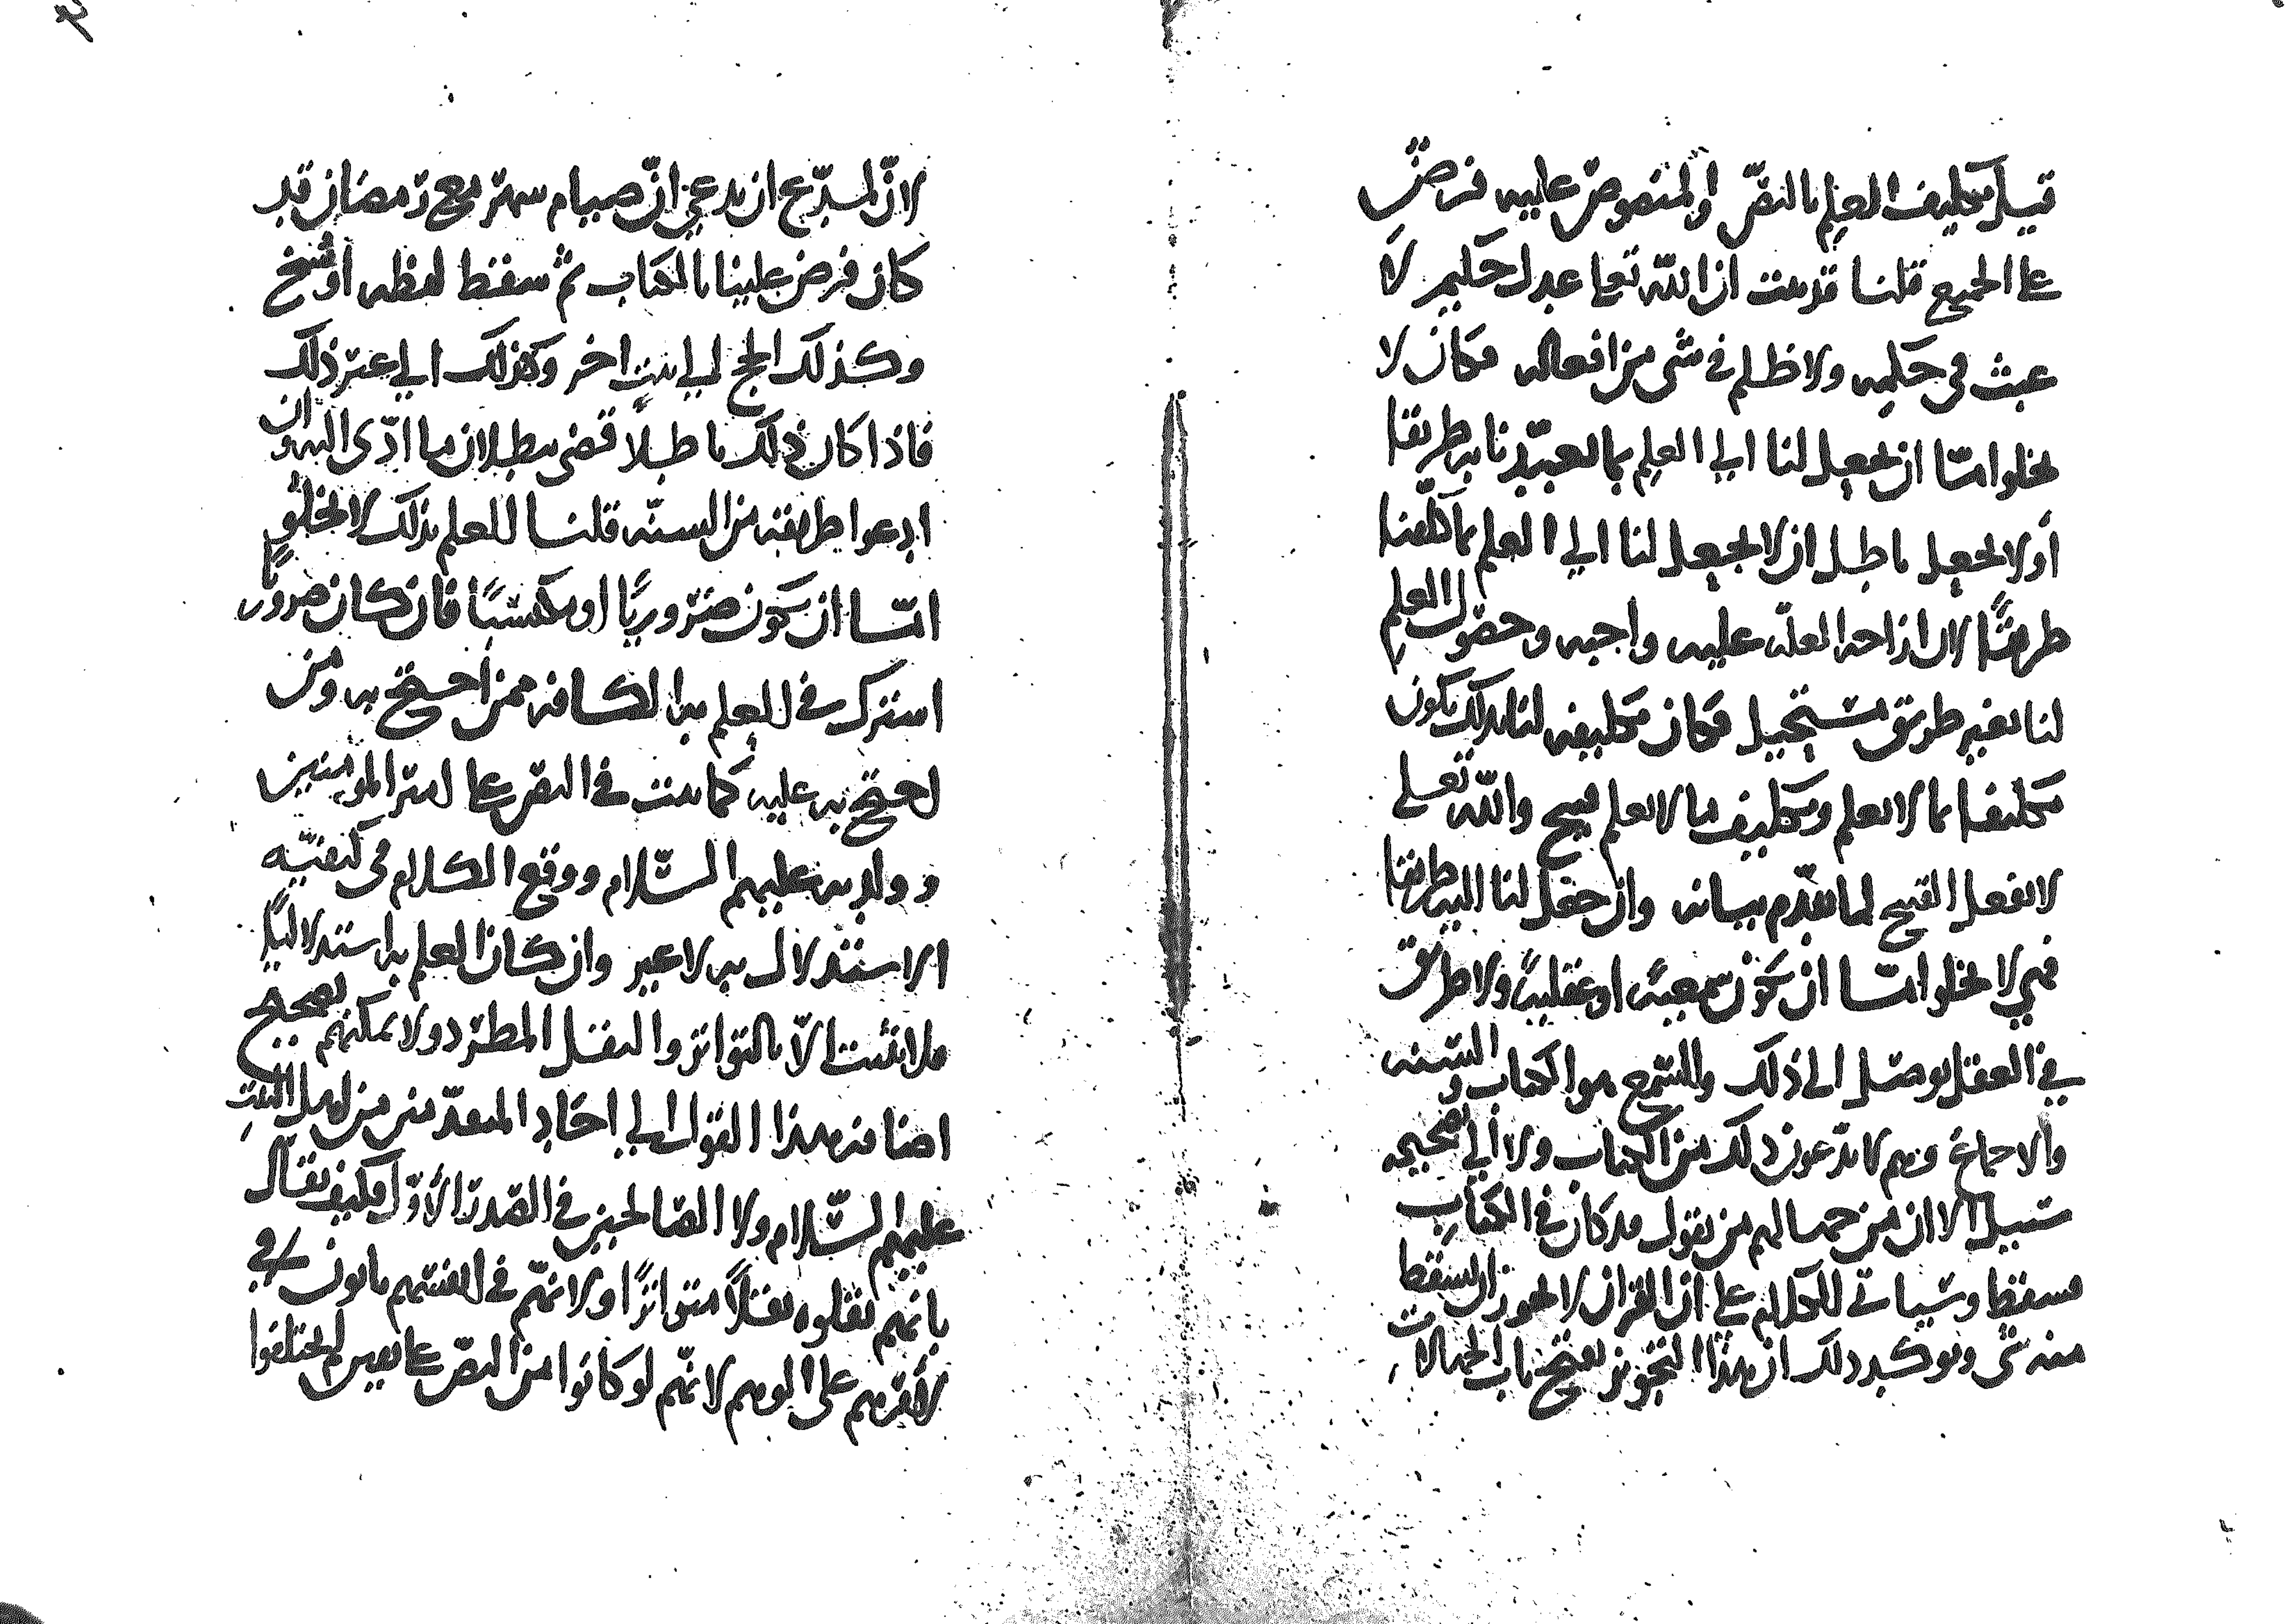 قيل تكليف العلم بالنص والمنصوص عليه فرض
على الجميع قلنا قد ثبت ان الله تعالى عدل حكيم لا
عبث في حكمه ولا ظلم في شي من افعاله فكان لا
يخلوا امّا ان يجعل لنا الى العلم بما تعبّدنا به طريقا
أو لا يجعل باطل ان لا يجعل لنا الى العلم بما كلّفنا
طريقًا لان ازاحة العلّة عليه واجبه وحصول العلم
لنا بغير طريق مستحيل فكان تكليفه لنا بذلك يكون
تكليفا بما لا يعلم وتكليف ما لا يعلم قبيح والله تعلى
لا يفعل القبيح لما تقدّم بيانه وان جعل لنا اليه طريقا
فهي لا يخلوا امّا ان تكون سمعيةً او عقليةً ولا طريق
في العقل يوصل الى ذلك والسمع هو الكتاب والسنه
والاجماع وهم لا يدّعون ذلك من الكتاب ولا الى تصحيحه
سبيل الا ان من جهالهم من يقول قد كان في الكتاب
فسقط وسياتي الكلام على ان القران لا يجوز ان يسقط
منه شي ونوكد ذلك ان هذا التجويز يفتح باب الجهالات
لانّ لمدّع ان يدعي انّ صيام شهر مع رمضان قد
كان فرض علينا بالكتاب ثمّ سقط لفظه او نسخ
وكذلك الحج الى بيتٍ اخر وكذلك الى غير ذلك
فاذا كان ذلك باطلا قضى ببطلان ما ادّى اليه وان
ادعوا طريقته من السنّه قلنا العلم بذلك لا يخلو
امّا ان يكون ضروريًا او مكتسبًا فان كان ضروريًا
اشترك في العلم به الكافة ممن احتج به ومن
احتج به عليه كما ثبت في النص على امير المومنين
وولديه عليهم السّلام ووقع الكلام في كيفيّة
الاستدلال به لا غير وان كان العلم به استدلاليًا
فلا يثبت الّا بالتواتر والنقل المطّرد ولا يمكنهم تصحيح
اضافة هذا القول الى احاد المتقدّمين من اهل البيت
عليهم السّلام ولا الصالحين في الصدر الأوّل فكيف يقال
بانهم نقلوه نقلًا متواترًا ولانهّم في انفسهم يابون
لأنّهم لو كانوا من النص على يقين لم يختلفوا